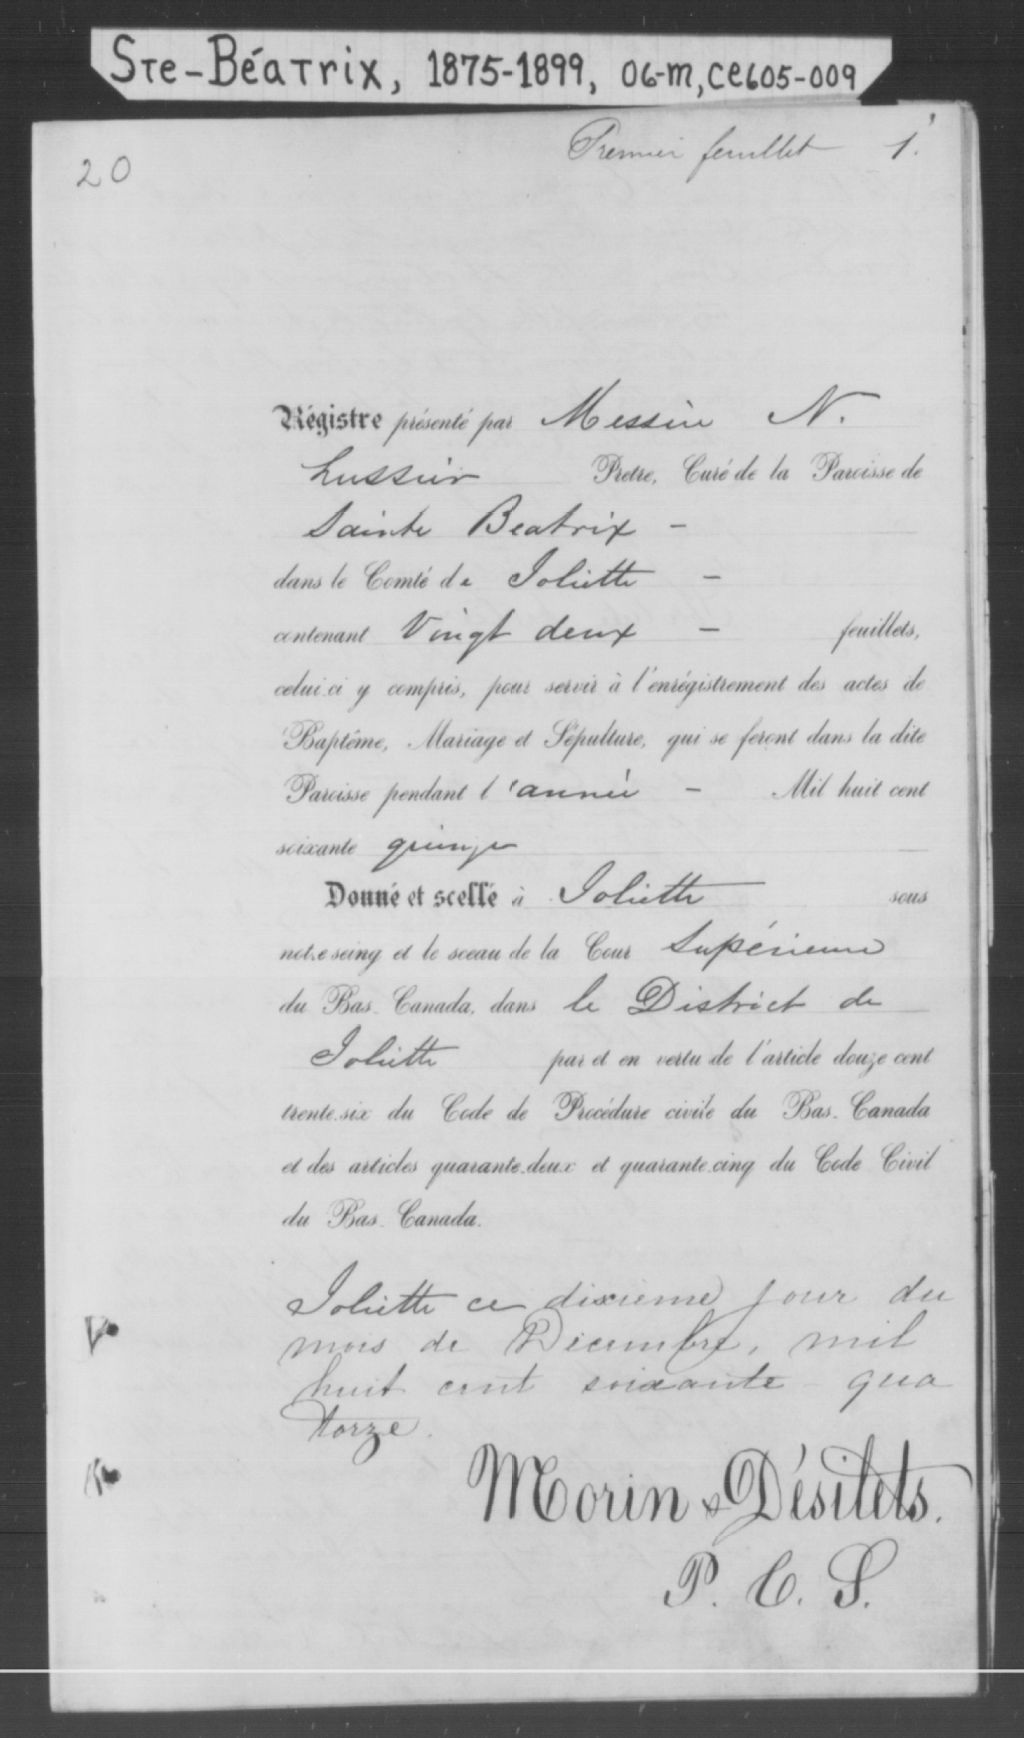 Ste-Béatrix, 1875-1899, 06-M, CE605-009
20
Premier feuillet 1.
Régistre présenté par Messire N.
Lussier Pretre, Curé de la Paroisse de
Sainte Beatrix -
dans le Comté de Joliette -
contenant Vingt deux - feuillets,
celui-ci y compris, pour servir à l'enrégistrement des actes de
Baptême, Mariage et Sépulture, qui se feront dans la dite
Paroisse pendant l'année - Mil huit cent
soixante quinze
Donné et scellé à Joliette sous
notre seing et le sceau de la Cour Supérieure
du Bas-Canada, dans le District de
Joliette par et en vertu de l'article douze cent
trente-six du Code de Procédure civile du Bas-Canada
et des articles quarante-deux et quarante-cinq du Code Civil
du Bas-Canada.
Joliette ce dixieme jour du
mois de Décembre, mil
huit cent soixante qua
torze.
Morin & Désilets.
P. C. S.